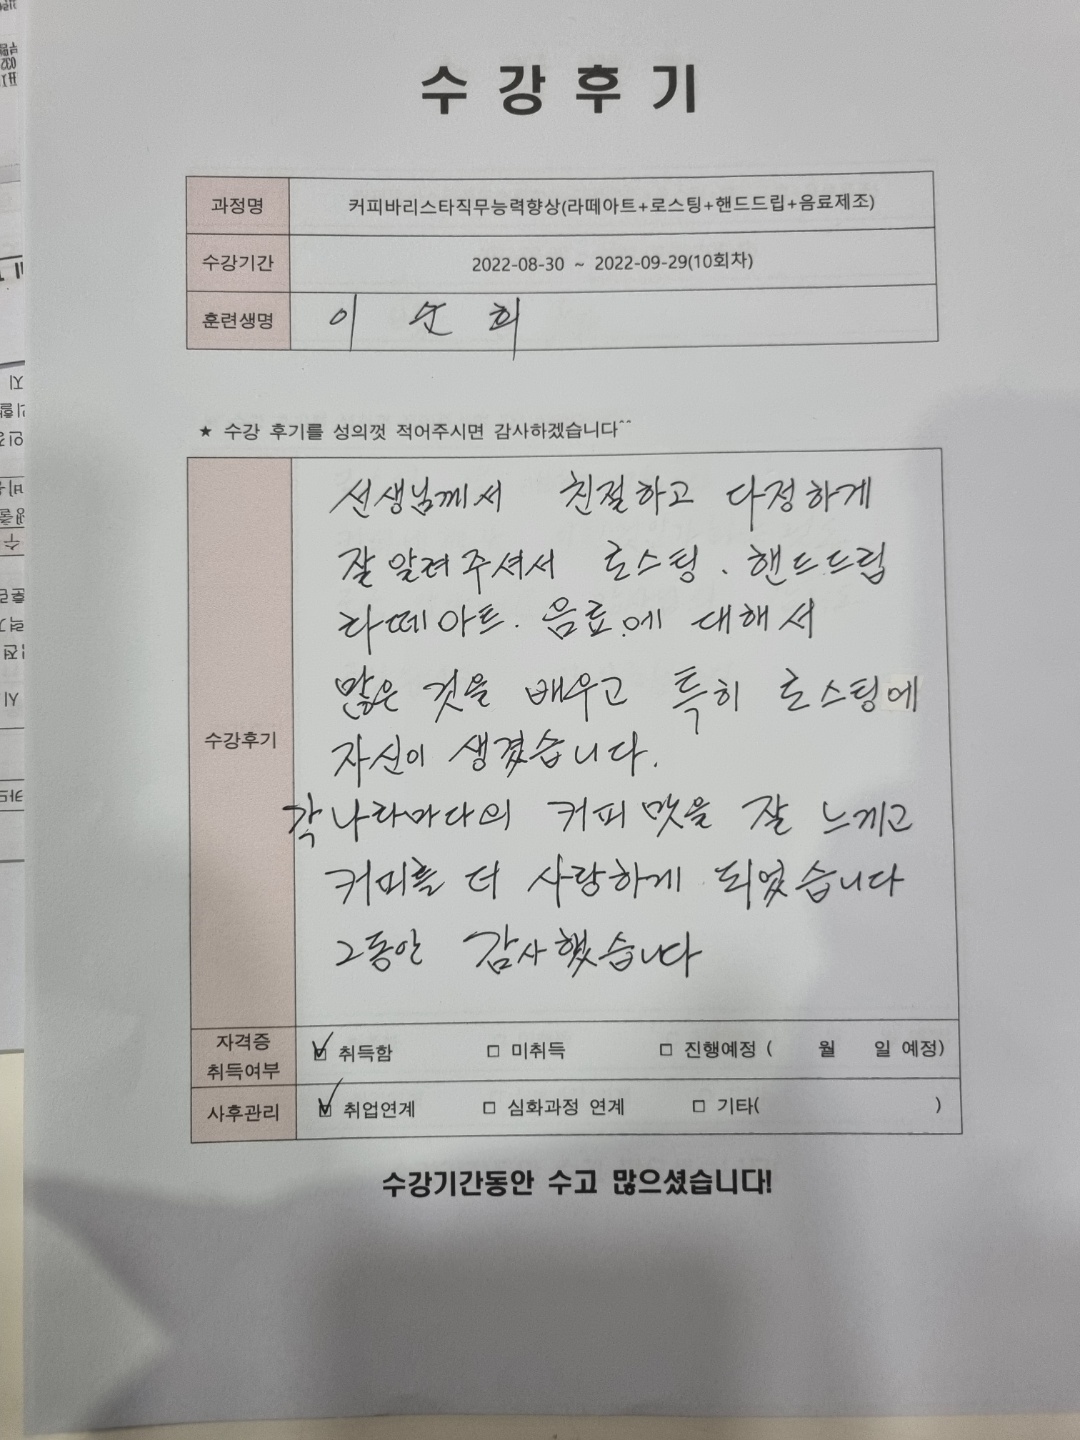 수강후기
과정명 커피바리스타직무능력향상(라떼아트+로스팅+핸드드립+음료제조)
수강기간 2022-08-30 ~ 2022-09-29(10회차)
훈련생명 이 순 희
★ 수강 후기를 성의껏 적어주시면 감사하겠습니다^^
선생님께서 친절하고 다정하게
잘 알려주셔서 로스팅. 핸드드립
라떼아트. 음료.에 대해서
많은 것을 배우고 특히 로스팅에
수강후기
자신이 생겼습니다.
각 나라마다의 커피 맛을 잘 느끼고
커피를 더 사랑하게 되었습니다
그동안 감사했습니다
자격증
취득여부
☑ 취득함 □ 미취득 □ 진행예정 ( 월 일 예정)
사후관리 ☑ 취업연계 □ 심화과정 연계 □ 기타( )
수강기간동안 수고 많으셨습니다!